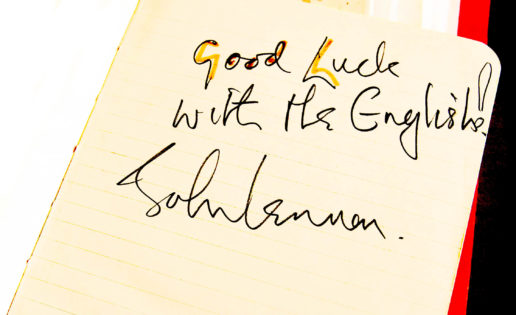 Good Luck
with the English!
John Lennon.